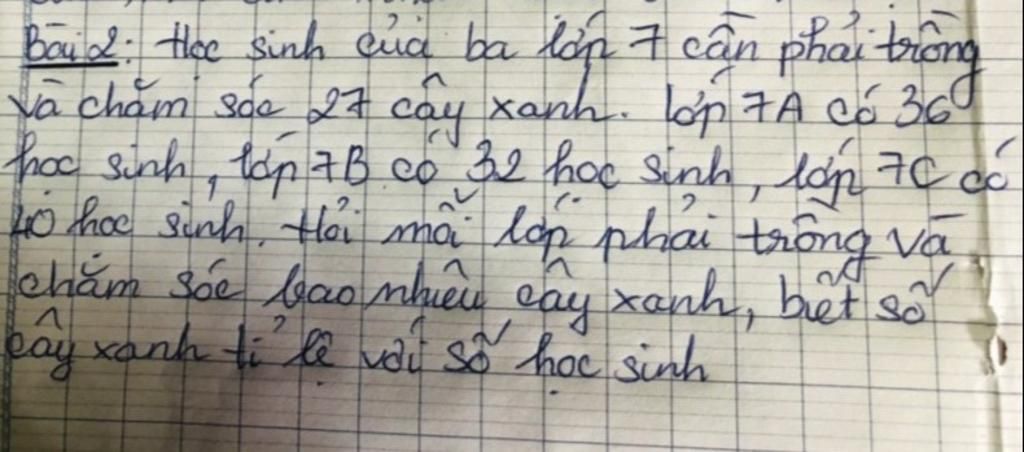 Bài 2: Học sinh của ba lớp 7 cần phải trồng
và chăm sóc 27 cây xanh. Lớp 7A có 36
học sinh, lớp 7B có 32 học sinh, lớp 7C có
40 học sinh. Hỏi mỗi lớp phải trồng và
chăm sóc bao nhiêu cây xanh, biết số
cây xanh tỉ lệ với số học sinh